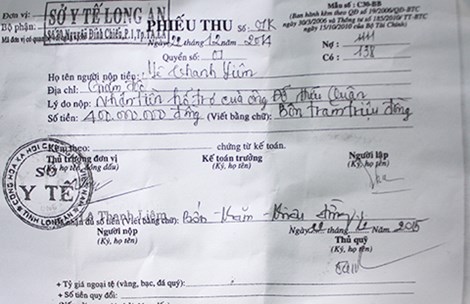 Đơn vị:
SỞ Y TẾ LONG AN
Bộ phận:
Số 70, Nguyễn Đình Chiểu, P.1, Tp.TA.LA
Mã đơn vị
PHIẾU THU
Số 07K
Mẫu số : C30-BB
(Ban hành kèm theo QĐ số 19/2006/QĐ-BTC
30/3/2006 và Thông tư số 185/2010/TT-BTC
15/11/2010 của Bộ Tài Chính)
Ngày 22 tháng 12 năm 2014
Quyển số: 07
Nợ: 111
Có: 138
Họ tên người nộp tiền: Lê Thanh Liêm
Địa chỉ: Giám đốc
Lý do nộp: Nhận tiền hỗ trợ của ông Đỗ Quận
Số tiền: 400.000.000 đồng (Viết bằng chữ): Bốn trăm triệu đồng
Kèm theo: chứng từ kế toán.
Thủ trưởng đơn vị
Kế toán trưởng
Người lập
(Ký, họ tên, đóng dấu)
(Ký, họ tên)
(Ký, họ tên)
CỘNG HÒA XÃ HỘI
SỞ
Y TẾ
TỈNH LONG AN
Lê Thanh Liêm
Đã nhận đủ số tiền (Viết bằng chữ): Bốn trăm triệu đồng
Người nộp
(Ký, họ tên)
Ngày 22 tháng 2015
Thủ quỹ
(Ký, họ tên)
+ Tỷ giá ngoại tệ (vàng, bạc, đá quý):
+ Số tiền quy đổi: